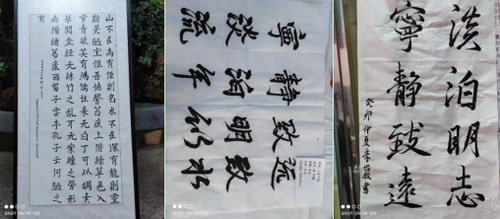 山不在高有僊則名水不在深有龍則靈
斯是陋室惟吾德馨苔痕上階綠草色入
簾青談笑有鴻儒往來無白丁可以調素
琴閱金經無絲竹之亂耳無案牘之勞形
南陽諸葛廬西蜀子雲亭孔子云何陋之
有
寧靜致远
淡泊明致
流年似水
淡泊明志
寧靜致遠
癸卯仲夏李書